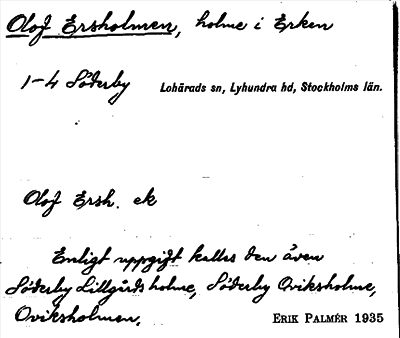 Olof Ersholmen, holme i Erken
1-4 Söderby Lohärads sn, Lyhundra hd, Stockholms län.
Olof Ersh. ek
Enligt uppgift kallas den även
Söderby Lillgårds holme, Söderby Qviksholme,
Qviksholmen. ERIK PALMÉR 1935